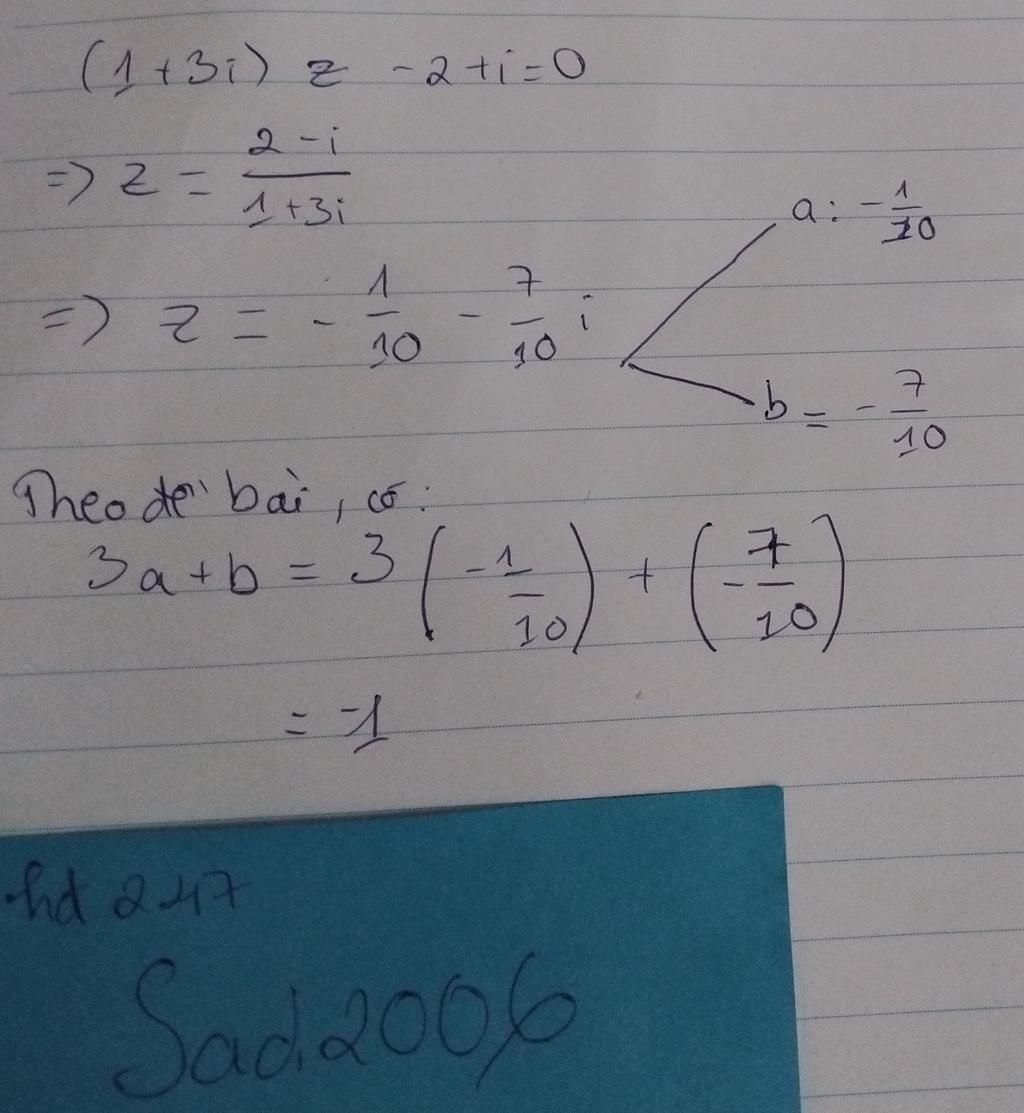 (1+3i) z -2+i=0
=> z = \frac{2-i}{1+3i}
=> z = -\frac{1}{10} - \frac{7}{10} i
a: -\frac{1}{10}
b = -\frac{7}{10}
Theo đề bài, có:
3a+b = 3 (-\frac{1}{10}) + (-\frac{7}{10})
= -1
hd 247
Sad.2006